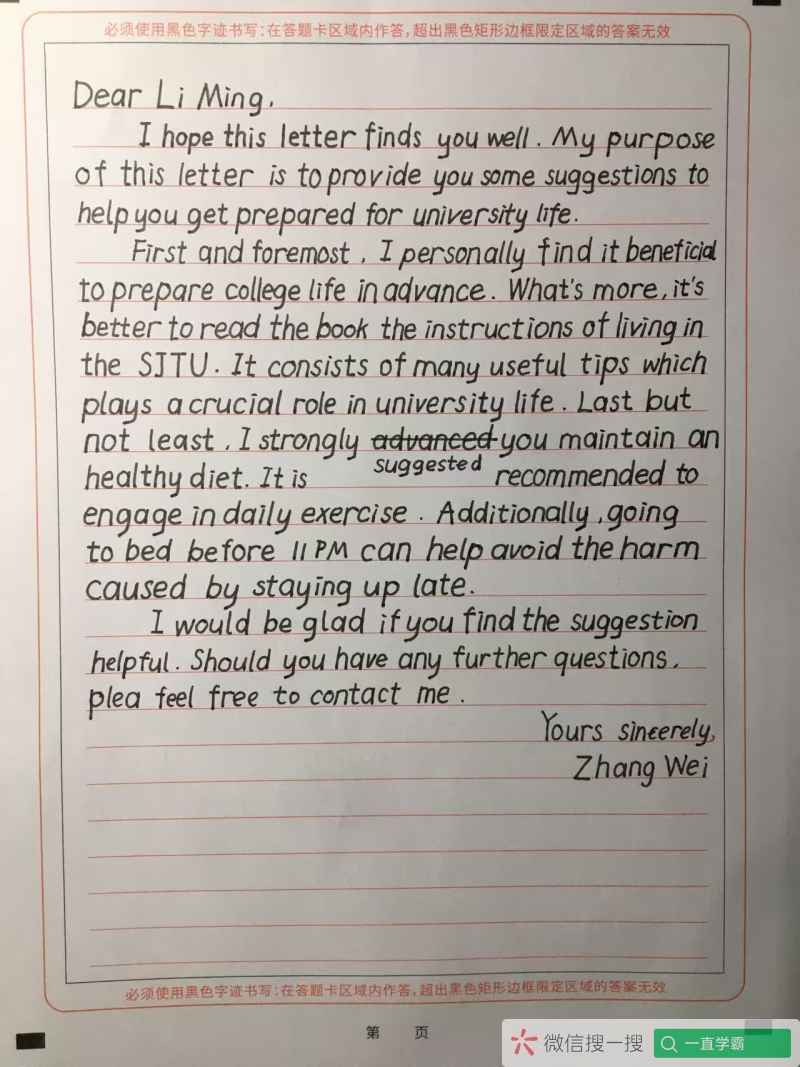 必须使用黑色字迹书写:在答题卡区域内作答,超出黑色矩形边框限定区域的答案无效
Dear Li Ming,
I hope this letter finds you well. My purpose
of this letter is to provide you some suggestions to
help you get prepared for university life.
First and foremost, I personally find it beneficial
to prepare college life in advance. What's more, it's
better to read the book the instructions of living in
the SJTU. It consists of many useful tips which
plays a crucial role in university life. Last but
not least, I strongly advanced you maintain an
suggested
healthy diet. It is recommended to
engage in daily exercise. Additionally, going
to bed before 11 PM can help avoid the harm
caused by staying up late.
I would be glad if you find the suggestion
helpful. Should you have any further questions,
plea feel free to contact me.
Yours sincerely,
Zhang Wei
必须使用黑色字迹书写:在答题卡区域内作答,超出黑色矩形边框限定区域的答案无效
第 页
微信搜一搜 一直学霸